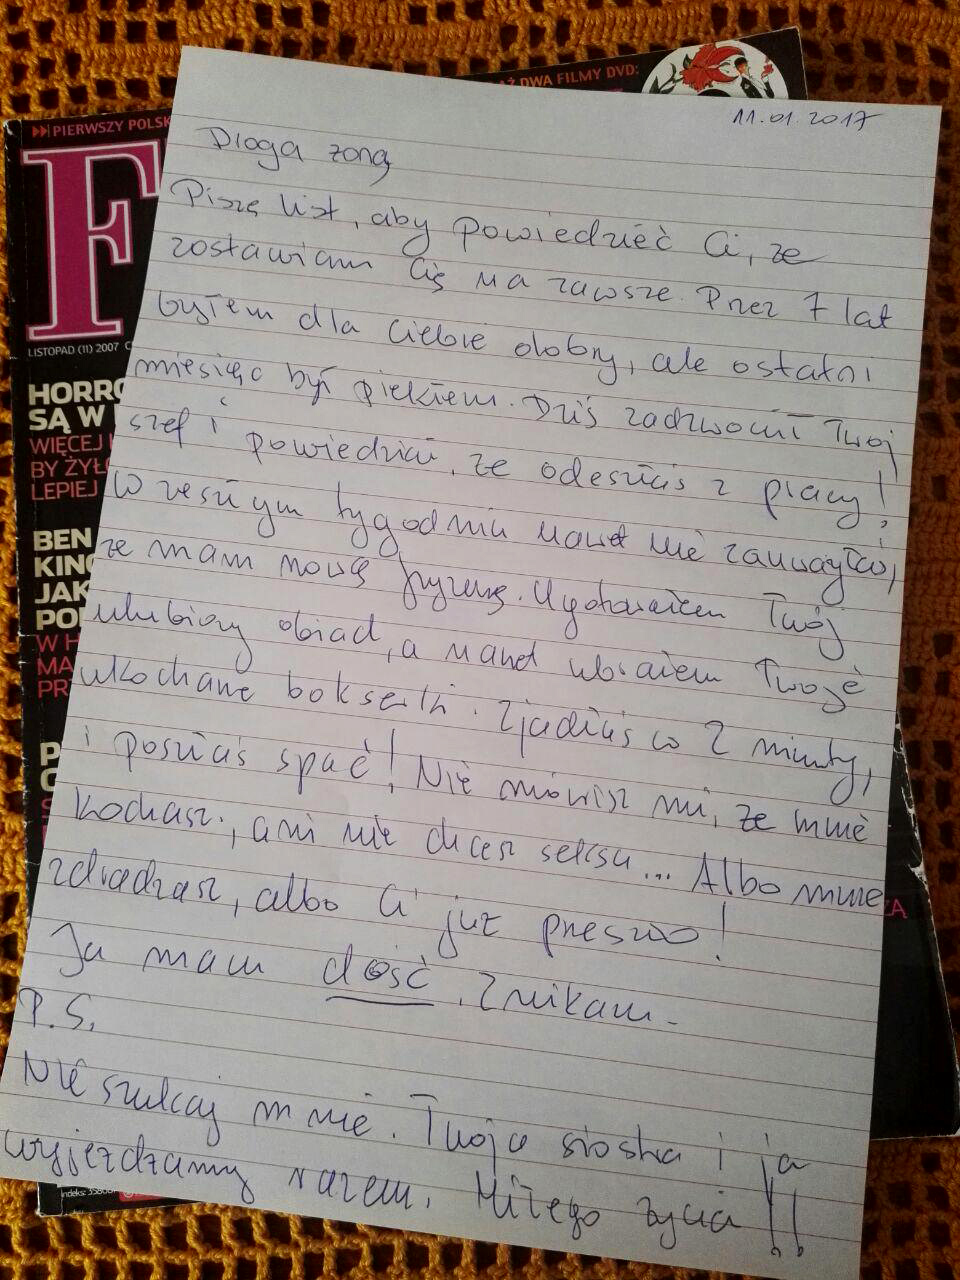 ▶▶ PIERWSZY POLSK
Ż DWA FILMY DVD:
F
LISTOPAD (11) 2007 C
HORRO
SĄ W
WIĘCEJ
BY ŻYŁO
LEPIEJ
BEN
KING
JAK
POL
W H
MA
PR
11.01.2017
Droga żono
Piszę list, aby powiedzieć Ci, że
zostawiam Cię na zawsze. Przez 7 lat
byłem dla Ciebie dobry, ale ostatni
miesiąc był piekłem. Dziś zadzwonił Twój
szef i powiedział, że odeszłaś z pracy!
W zeszłym tygodniu nawet nie zauważyłaś,
że mam nową fryzurę. Ugotowałem Twój
ulubiony obiad, a nawet ubrałem Twoje
ukochane bokserki. Zjadłaś w 2 minuty,
i poszłaś spać! Nie mówisz mi, że mnie
kochasz, ani nie chcesz seksu... Albo mnie
zdradzasz, albo Ci już przeszło!
Ja mam dość. Znikam.
P.S.
Nie szukaj mnie. Twoja siostra i ja
wyjeżdżamy razem. Miłego życia!!